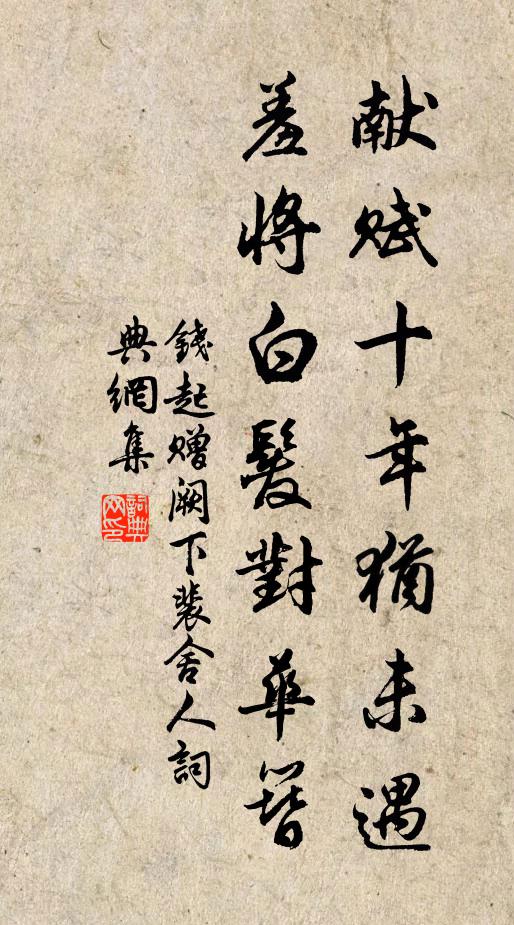 献赋十年猶未遇
羞將白髮對華簪
錢起赠阙下裴舍人詞
典網集
詞典网印